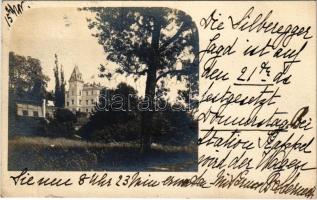 15/IV.
Die Silberegger
Jagd ist auf
den 21ten
festgesetzt
Donnerstag bei
Station Kappel
wird der Wagen
Sie neun 8 Uhr 23 Min